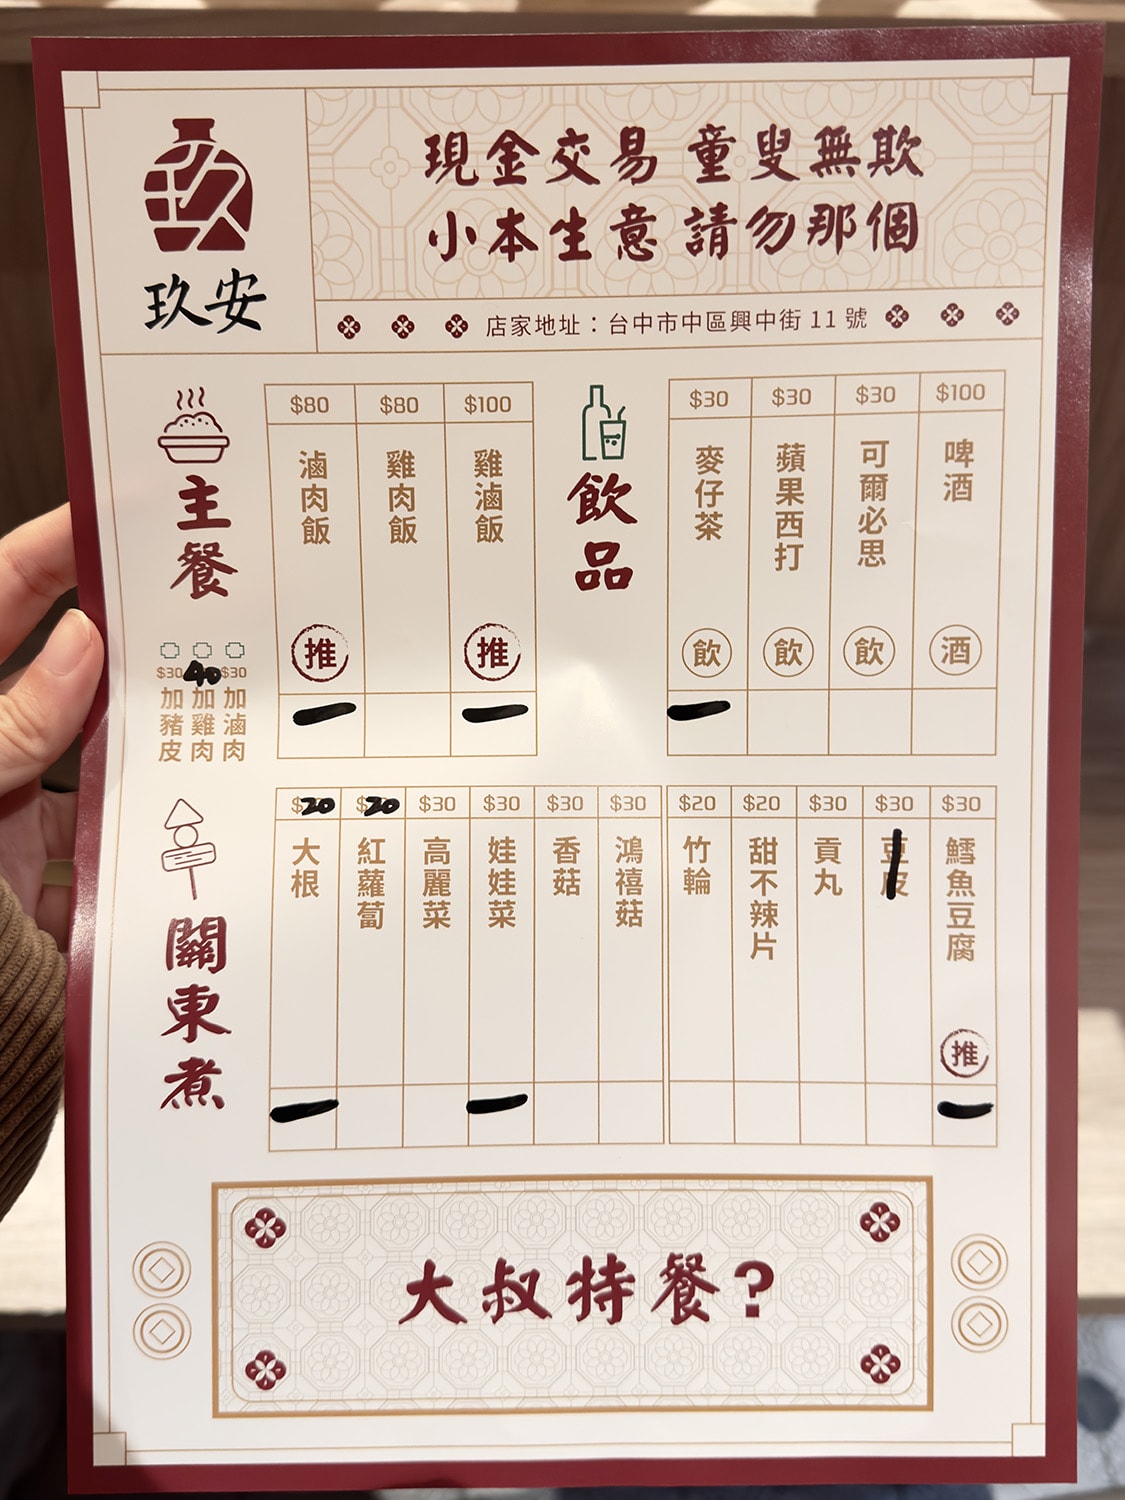 玖安
現金交易 童叟無欺
小本生意 請勿那個
店家地址：台中市中區興中街 11 號
主餐
$80 滷肉飯 推
$80 雞肉飯
$100 雞滷飯 推
$30 加豬皮
40 加雞肉
$30 加滷肉
飲品
$30 麥仔茶 飲
$30 蘋果西打 飲
$30 可爾必思 飲
$100 啤酒 酒
關東煮
$20 大根
$20 紅蘿蔔
$30 高麗菜
$30 娃娃菜
$30 香菇
$30 鴻禧菇
$20 竹輪
$20 甜不辣片
$30 貢丸
$30 豆皮
$30 鱈魚豆腐 推
大叔特餐?